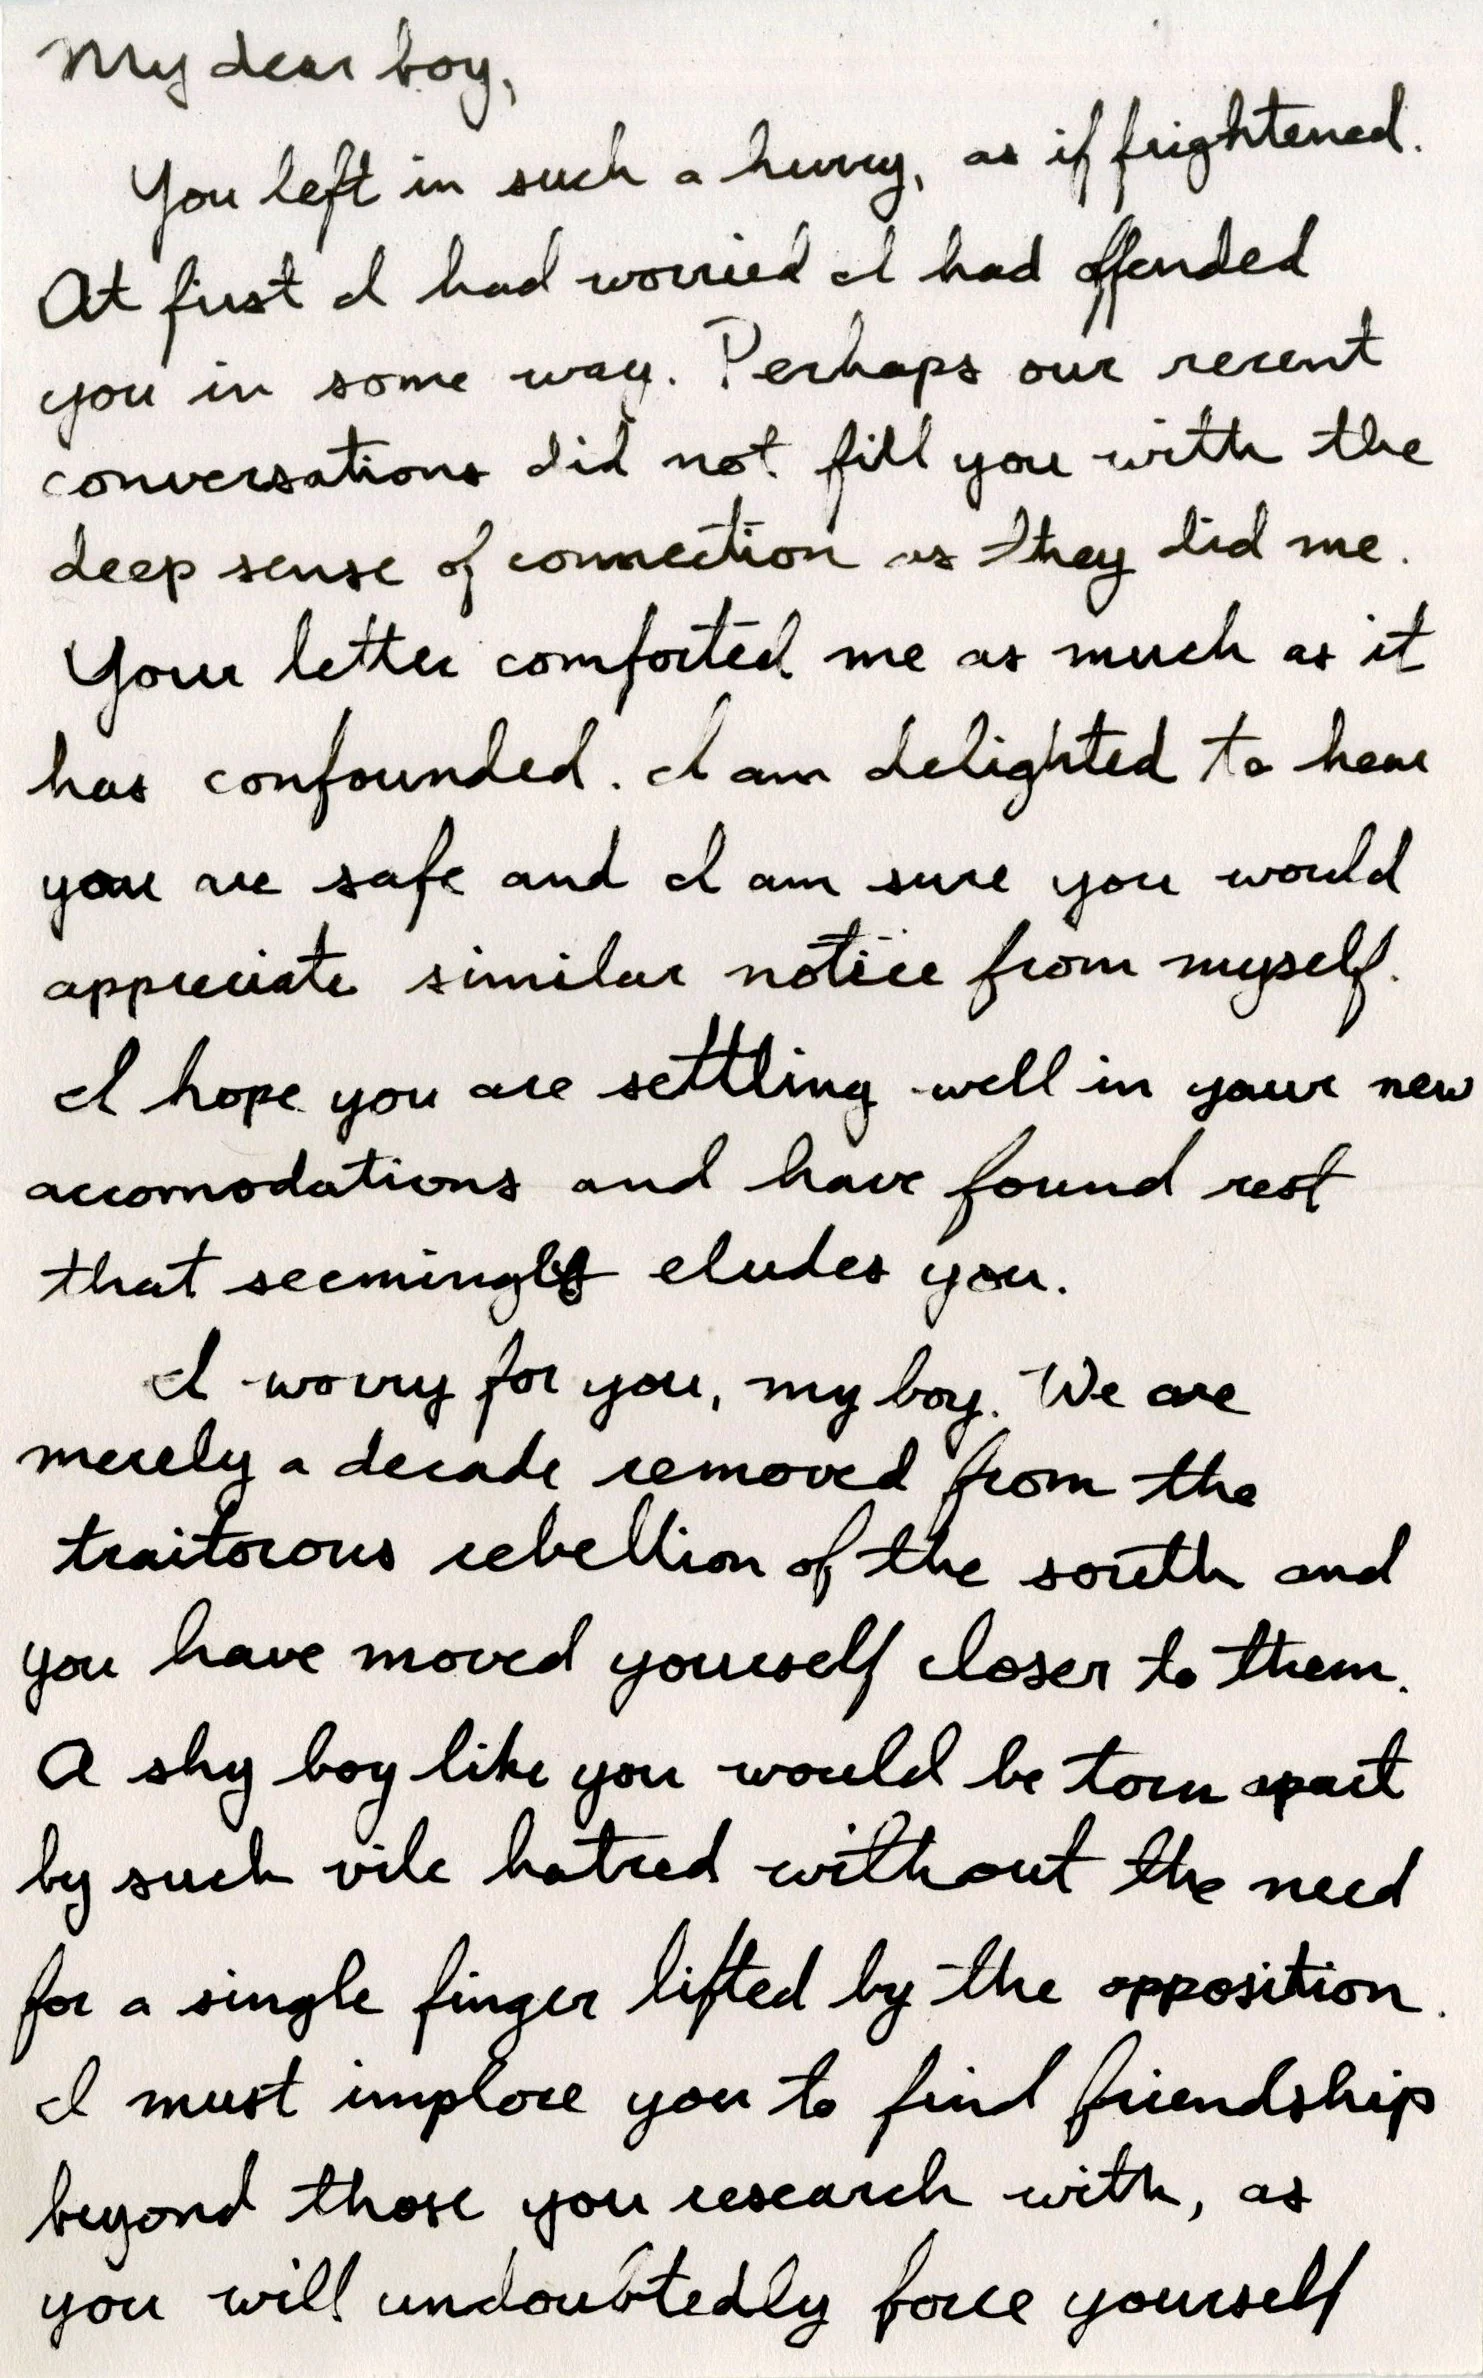 My dear boy,
You left in such a hurry, as if frightened.
At first I had worried I had offended
you in some way. Perhaps our recent
conversations did not fill you with the
deep sense of connection as they did me.
Your letter comforted me as much as it
has confounded. I am delighted to hear
you are safe and I am sure you would
appreciate similar notice from myself.
I hope you are settling well in your new
accomodations and have found rest
that seemingly eludes you.
I worry for you, my boy. We are
merely a decade removed from the
traitorous rebellion of the south and
you have moved yourself closer to them.
A shy boy like you would be torn apart
by such vile hatred without the need
for a single finger lifted by the opposition.
I must implore you to find friendship
beyond those you research with, as
you will undoubtedly force yourself